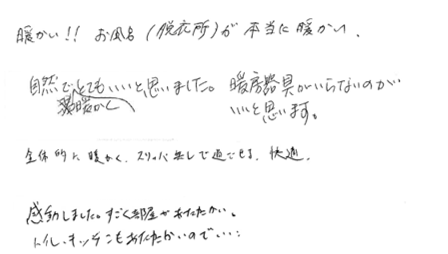 暖かい!! お風呂(脱衣所)が本当に暖かい.
自然でとてもいいと思いました。暖房器具がいらないのが
暖かく
いいと思います。
全体的に暖かく、スリッパ無しで過せる、快適.
感動しました。すごく部屋があたたかい。
トイレ・キッチンもあたたかいのでいい